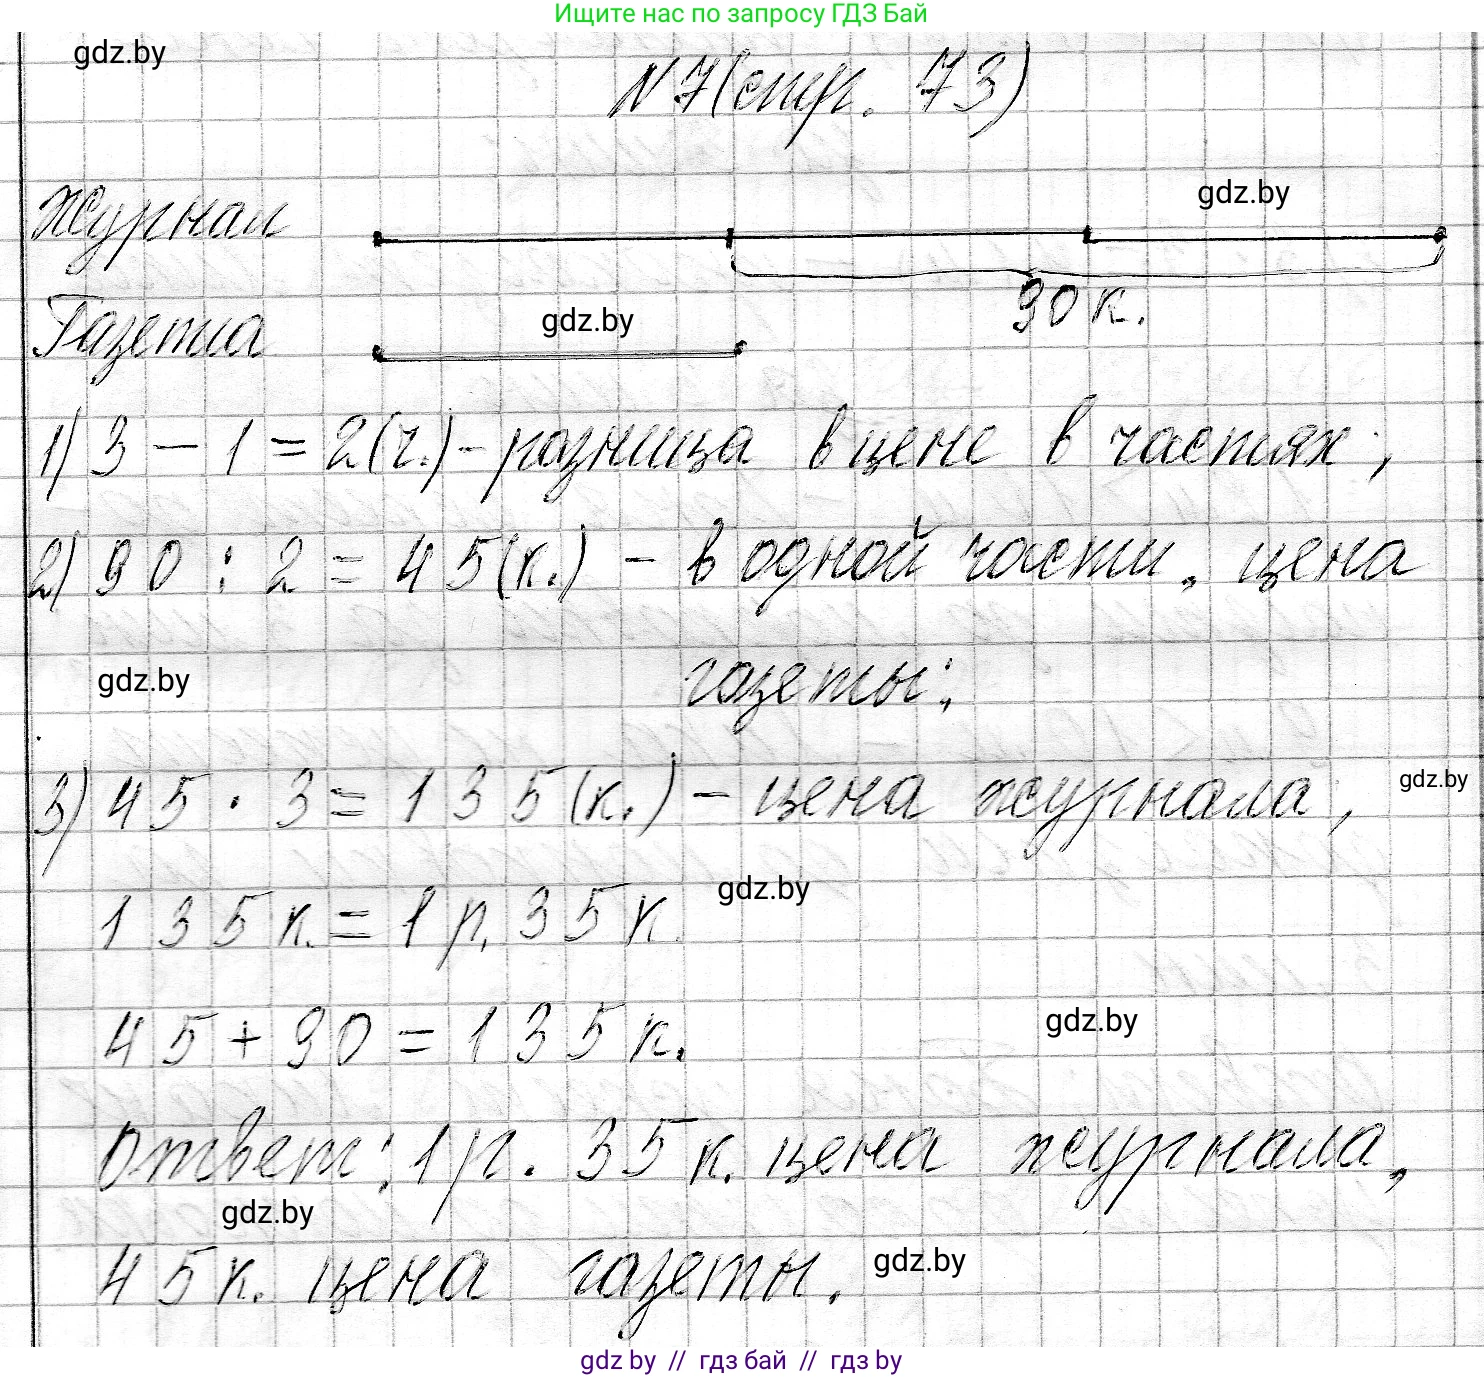 Ищите нас по запросу ГДЗ Бай
gdz.by
N 7 (стр. 73)
Журнал
gdz.by
90 к.
Газета
gdz.by
1) 3 - 1 = 2 (ч.) - разница в цене в частях;
2) 90 : 2 = 45 (к.) - в одной части, цена
gdz.by
газеты;
3) 45 · 3 = 135 (к.) - цена журнала,
gdz.by
135 к. = 1 р. 35 к
gdz.by
45 + 90 = 135 к.
gdz.by
Ответ: 1 р. 35 к. цена журнала,
gdz.by
45 к. цена газеты.
gdz.by
gdz by // гдз бай // гдз by